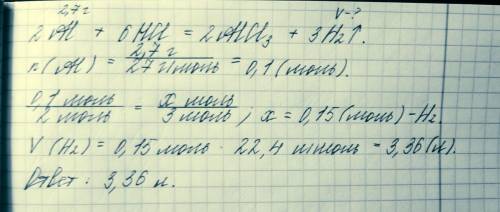 2,7 г V-?
2Al + 6HCl = 2AlCl₃ + 3H₂↑.
n(Al) = 2,7 г / 27 г/моль = 0,1 (моль).
0,1 моль / 2 моль = x моль / 3 моль ; x = 0,15 (моль) - H₂
V (H₂) = 0,15 моль · 22,4 л/моль = 3,36 (л).
Ответ: 3,36 л.